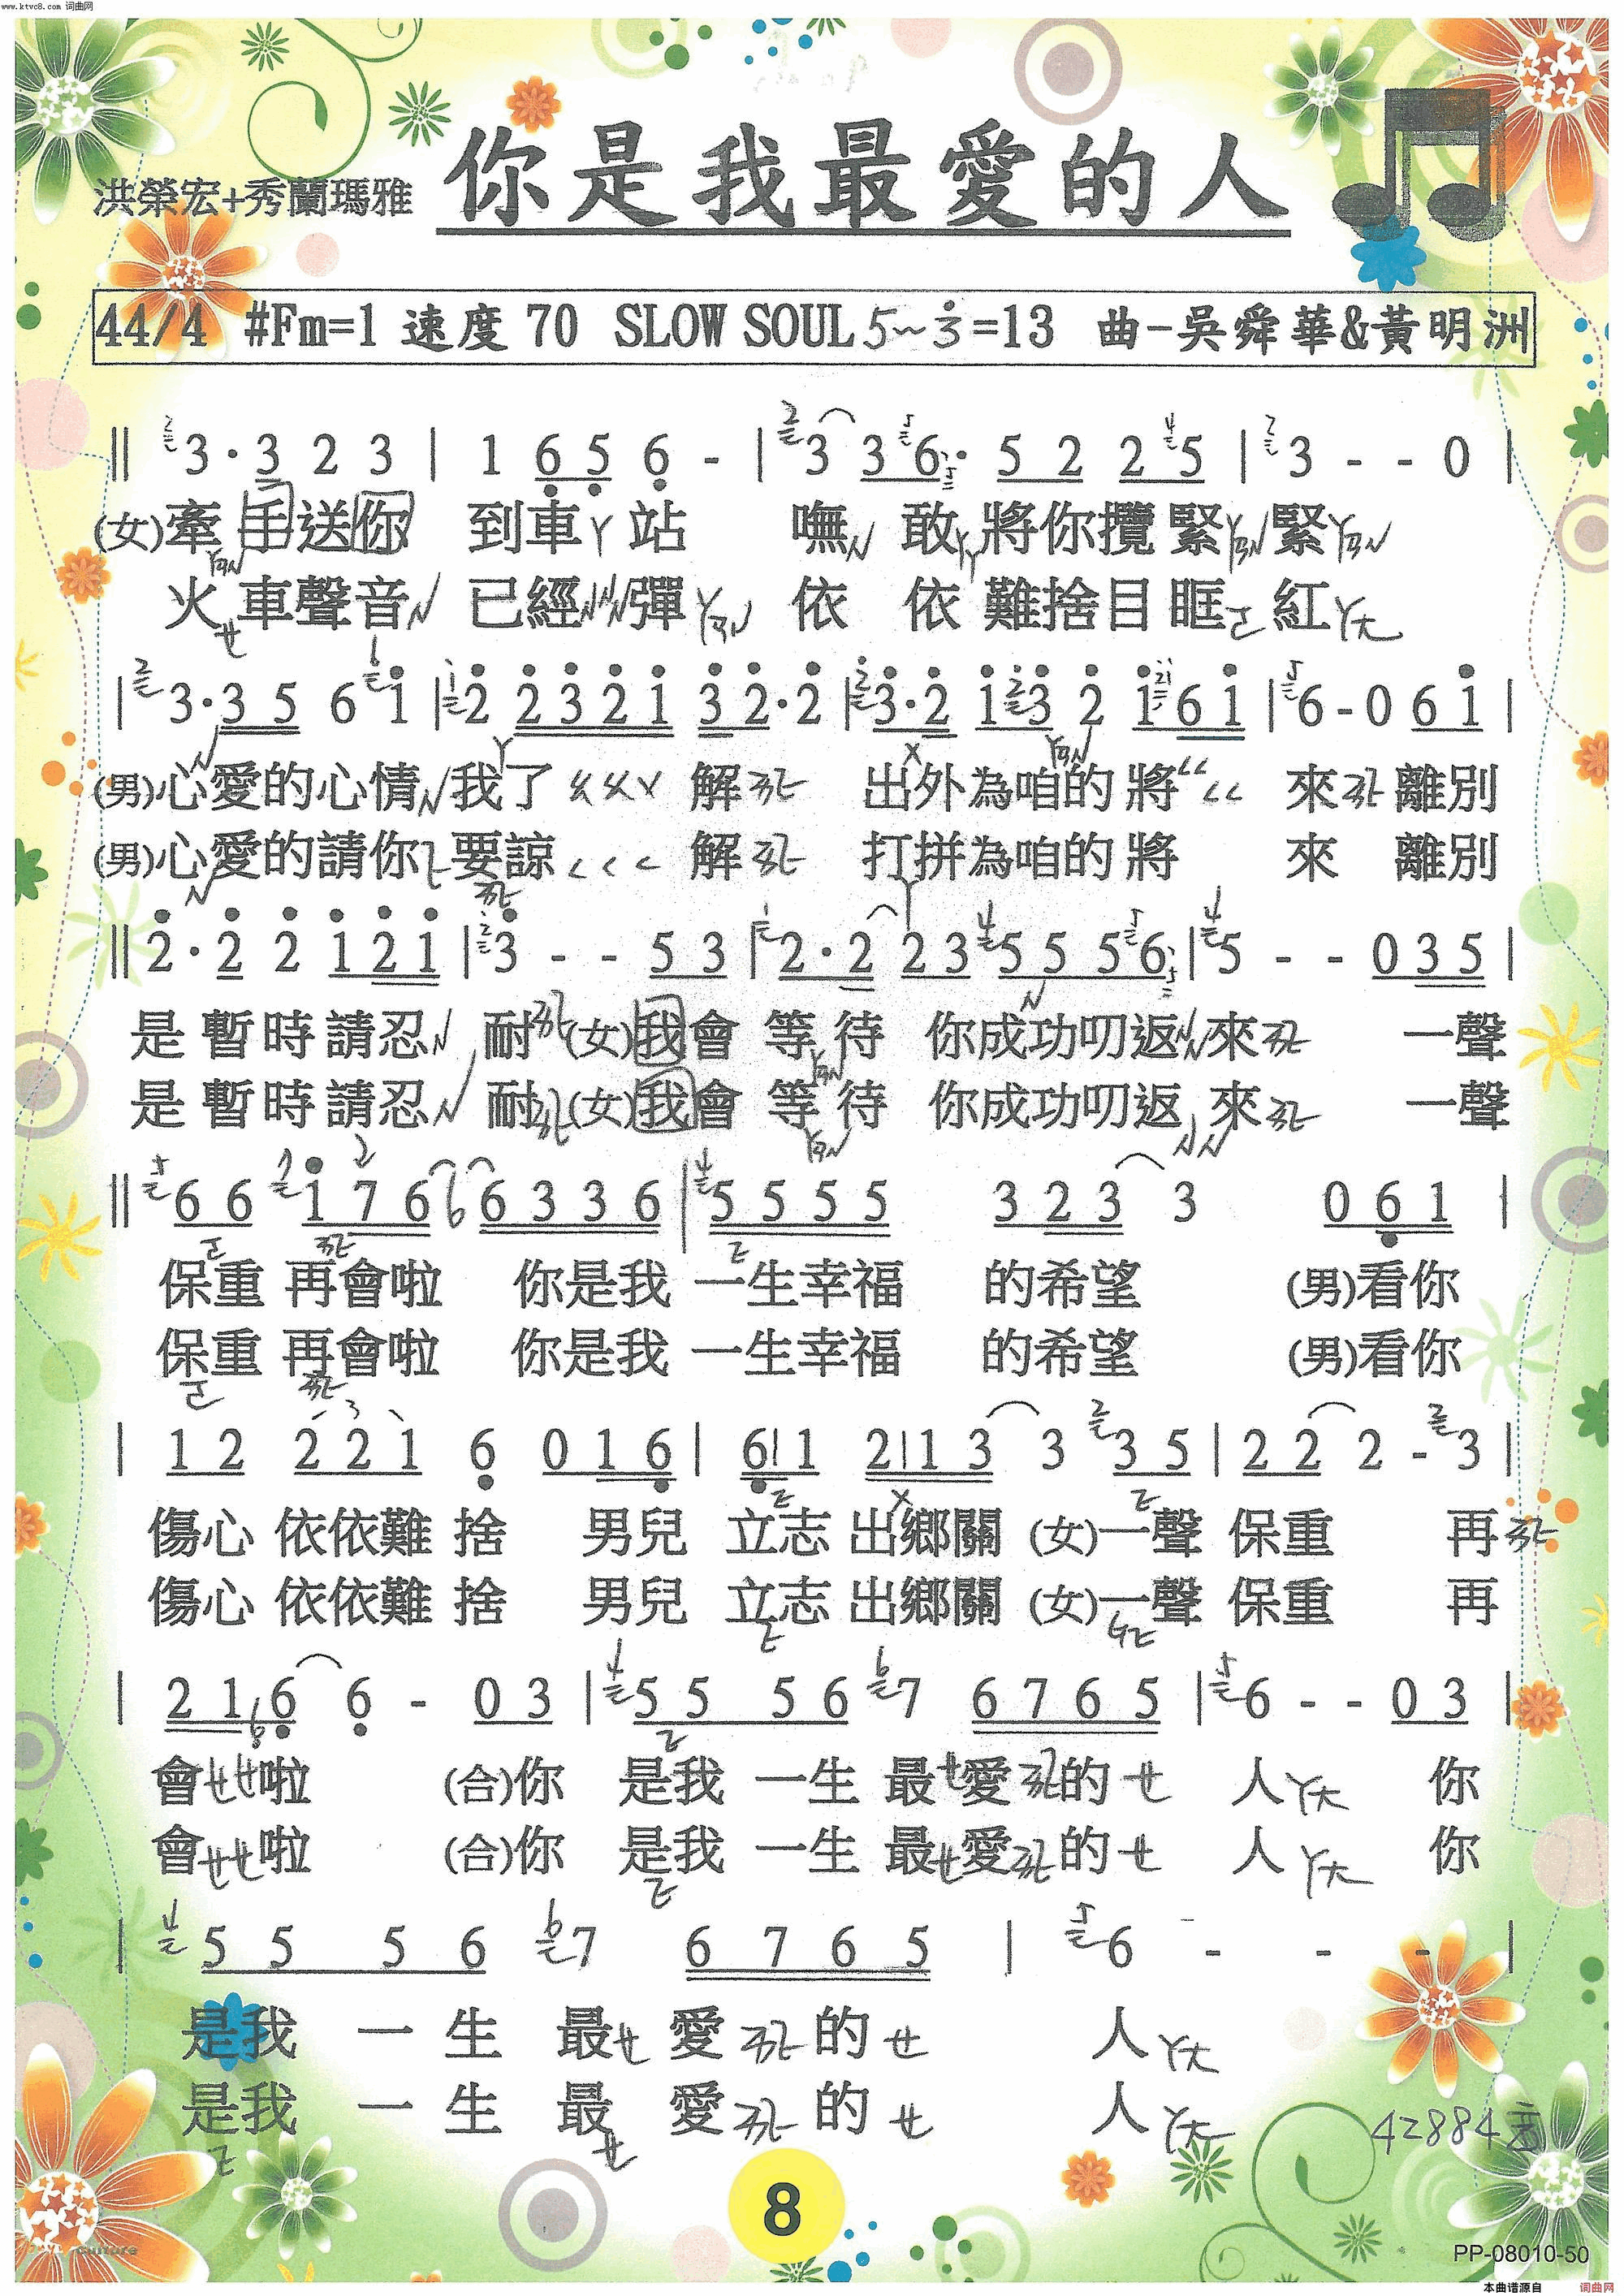 www.ktvc8.com 词曲网
你是我最愛的人
洪榮宏+秀蘭瑪雅
44/4 #Fm=1 速度 70 SLOW SOUL 5~3̇=13 曲-吳舜華&黃明洲
‖ 3·3 2 3 | 1 6 5 6 - | 3 3 6· 5 2 2 5 | 3 - - 0 |
(女)牽手送你 到車站 嘸敢將你攬緊緊
火車聲音 已經彈 依依難捨目眶紅
| 3·3 5 6 1̇ | 2̇ 2̇ 3̇ 2̇ 1̇ 3̇ 2̇·2̇ | 3̇·2̇ 1̇ 3̇ 2̇ 1̇ 6 1̇ | 6 - 0 6 1̇ |
(男)心愛的心情我了解 出外為咱的將來離別
(男)心愛的請你要諒解 打拼為咱的將來離別
‖ 2̇·2̇ 2̇ 1̇ 2̇ 1̇ | 3̇ - - 5 3 | 2·2 2 3 5 5 5 6 | 5 - - 0 3 5 |
是暫時請忍耐 (女)我會等待 你成功叨返來 一聲
是暫時請忍耐 (女)我會等待 你成功叨返來 一聲
‖ 6 6 1̇ 7 6 6 6 3 3 6 | 5 5 5 5 3 2 3 3 0 6 1 |
保重 再會啦 你是我 一生幸福 的希望 (男)看你
保重 再會啦 你是我 一生幸福 的希望 (男)看你
| 1 2 2 2 1 6 0 1 6 | 6 1 2 1 3 3 3 5 | 2 2 2 - 3 |
傷心 依依難捨 男兒 立志 出鄉關 (女)一聲 保重 再
傷心 依依難捨 男兒 立志 出鄉關 (女)一聲 保重 再
| 2 1 6 6 - 0 3 | 5 5 5 6 7 6 7 6 5 | 6 - - 0 3 |
會啦 (合)你 是我 一生 最愛的 人 你
會啦 (合)你 是我 一生 最愛的 人 你
| 5 5 5 6 7 6 7 6 5 | 6 - - - |
是我 一 生 最 愛 的 人
是我 一 生 最 愛 的 人
42884
8
PP-08010-50
本曲谱源自 词曲网